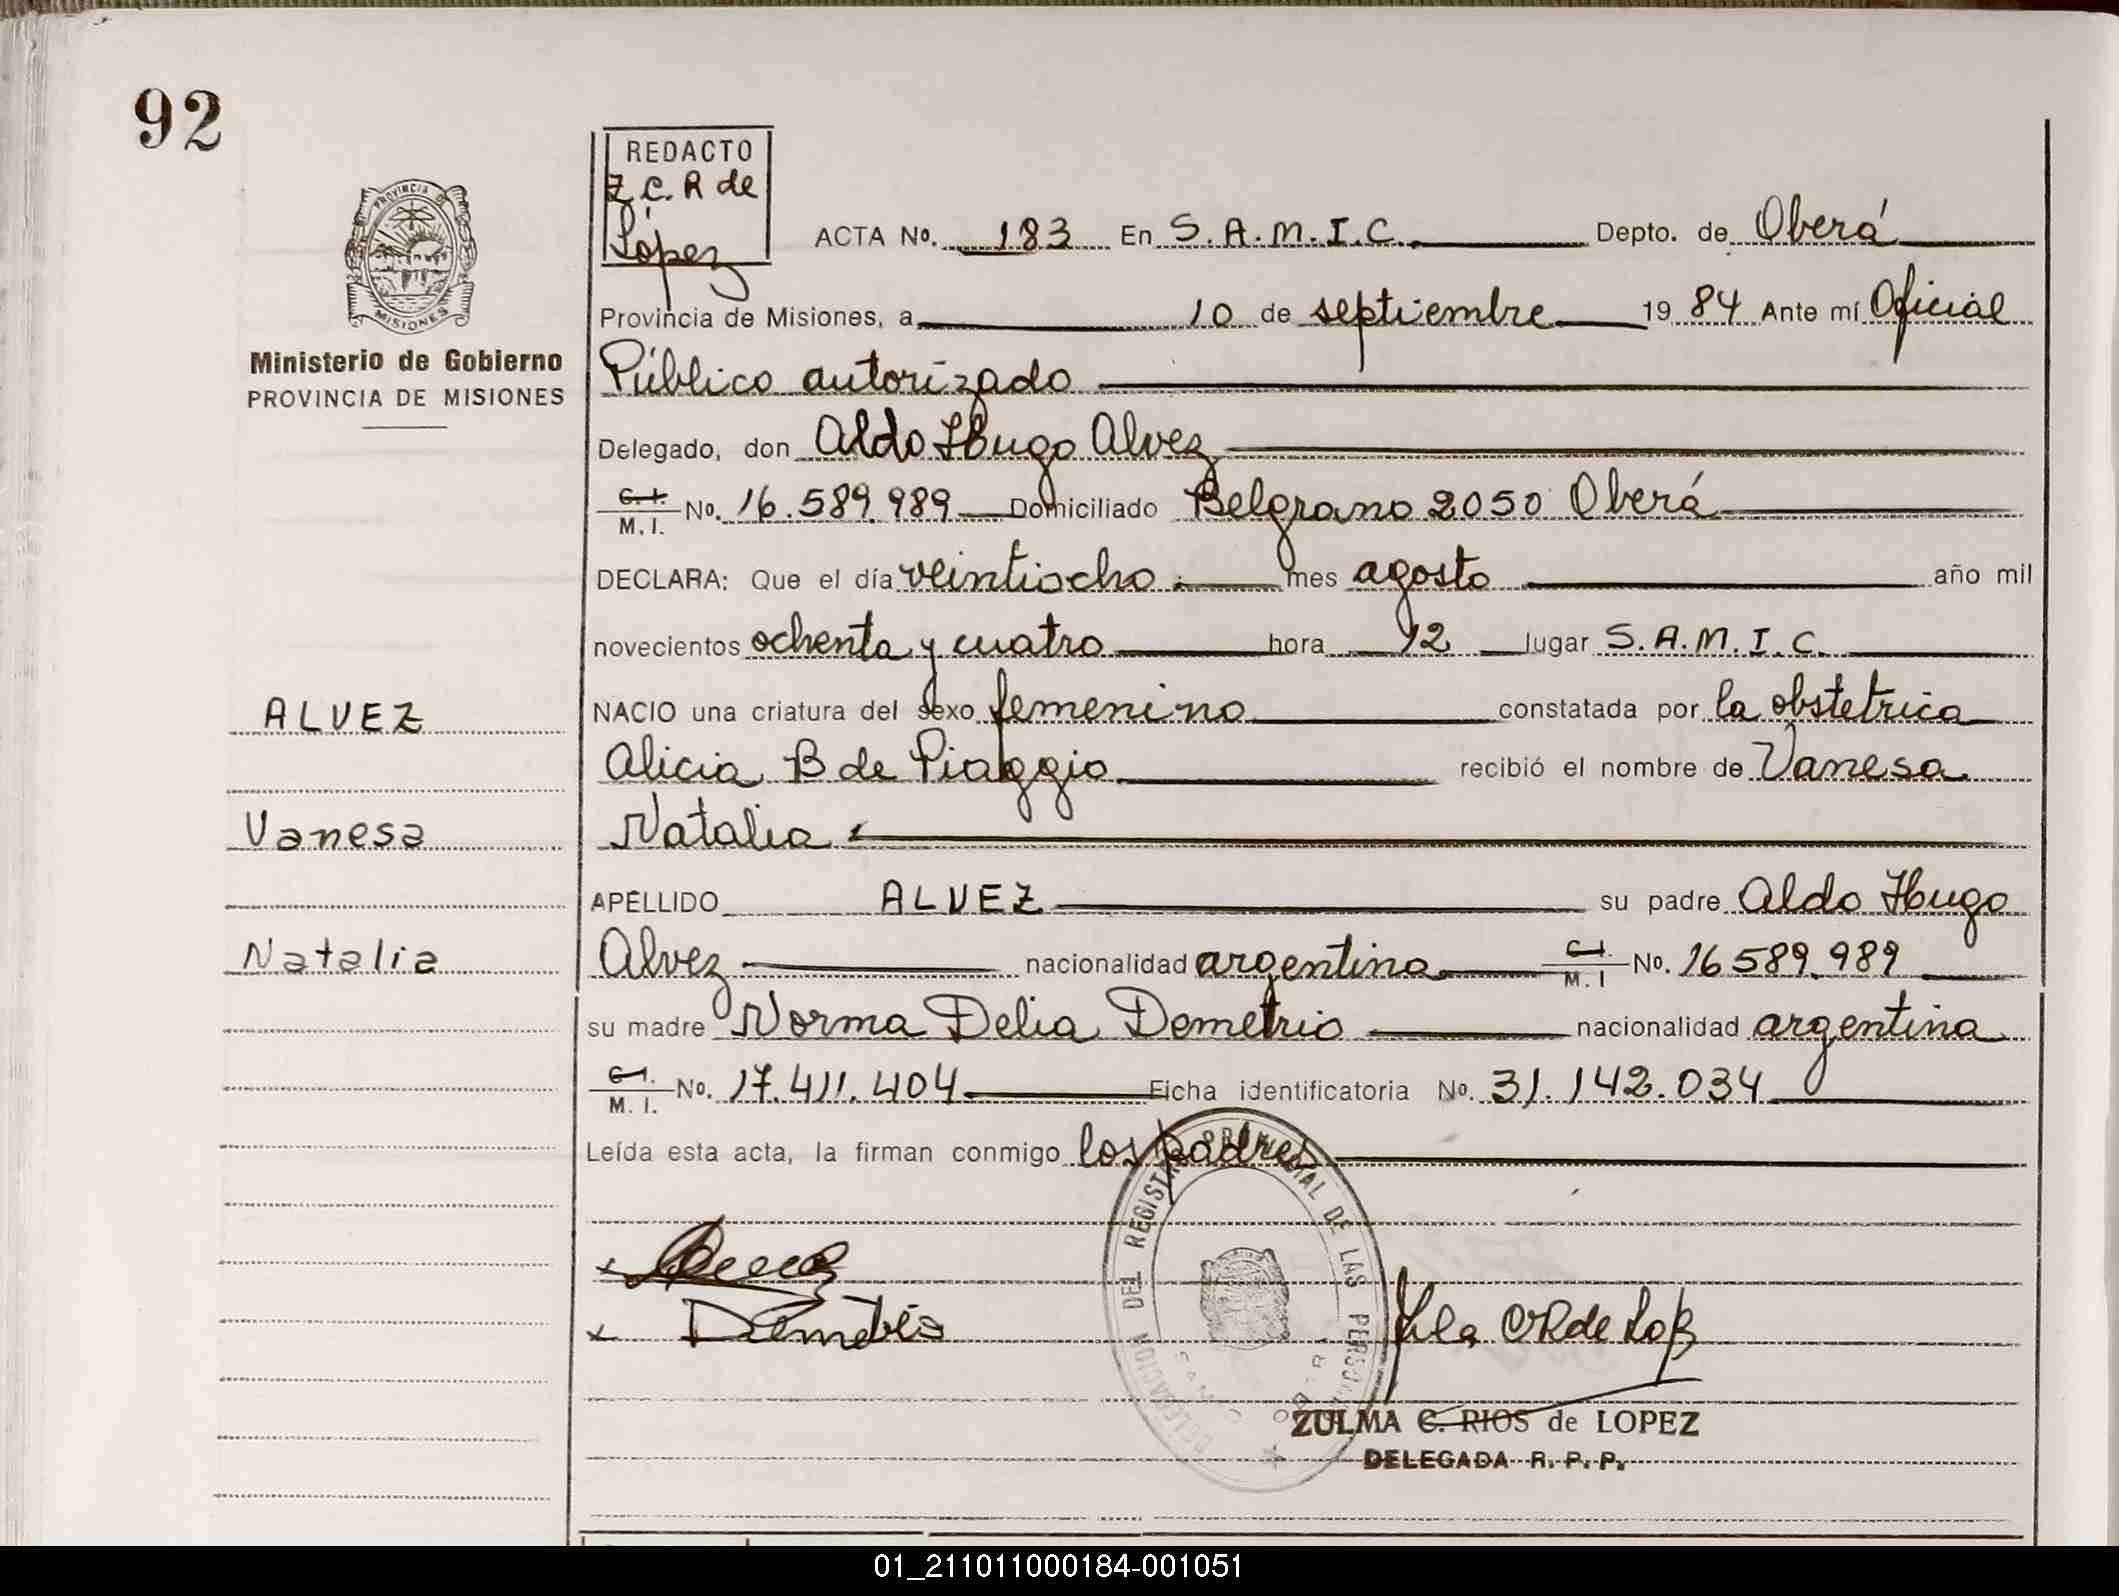 92
REDACTO
Z C. R de
López
ACTA No. 183 En S.A.M.I.C. Depto. de Oberá
PROVINCIA DE
MISIONES
Provincia de Misiones, a 10 de septiembre 1984 Ante mí Oficial
Ministerio de Gobierno
PROVINCIA DE MISIONES
Público autorizado
Delegado, don Aldo Hugo Alvez
C. I. M. I. No. 16.589.989 Domiciliado Belgrano 2050 Oberá
DECLARA: Que el día veintiocho mes agosto año mil
novecientos ochenta y cuatro hora 12 lugar S.A.M.I.C.
ALVEZ
NACIO una criatura del sexo femenino constatada por la obstetrica
Alicia B de Piaggio recibió el nombre de Vanesa
Vanesa
Natalia
APELLIDO ALVEZ su padre Aldo Hugo
Natalia
Alvez nacionalidad argentina C. I. M. I No. 16589.989
su madre Norma Delia Demetrio nacionalidad argentina
C. I. M. I. No. 17.411.404 Ficha identificatoria No. 31.142.034
Leída esta acta, la firman conmigo los padres
DELEGACION DEL REGISTRO PROVINCIAL DE LAS PERSONAS
x
x
ZULMA C. RIOS de LOPEZ
DELEGADA R. P. P.
01_211011000184-001051